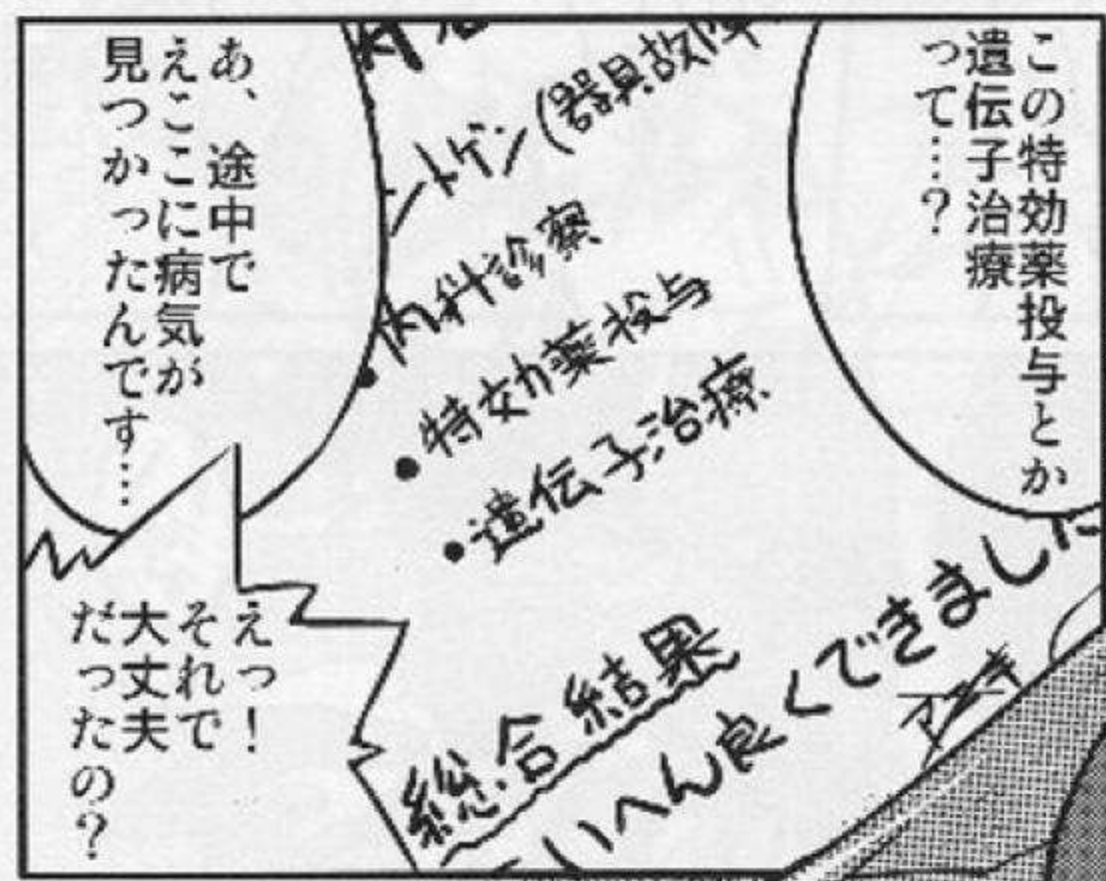 この特効薬投与とか
遺伝子治療
って…?
ートゲン(器具故障
内科診察
・特効薬投与
・遺伝子治療
総合結果
いへん良くできました
あ、途中で
えここに病気が
見つかったんです…
えっ!
それで
大丈夫
だったの?